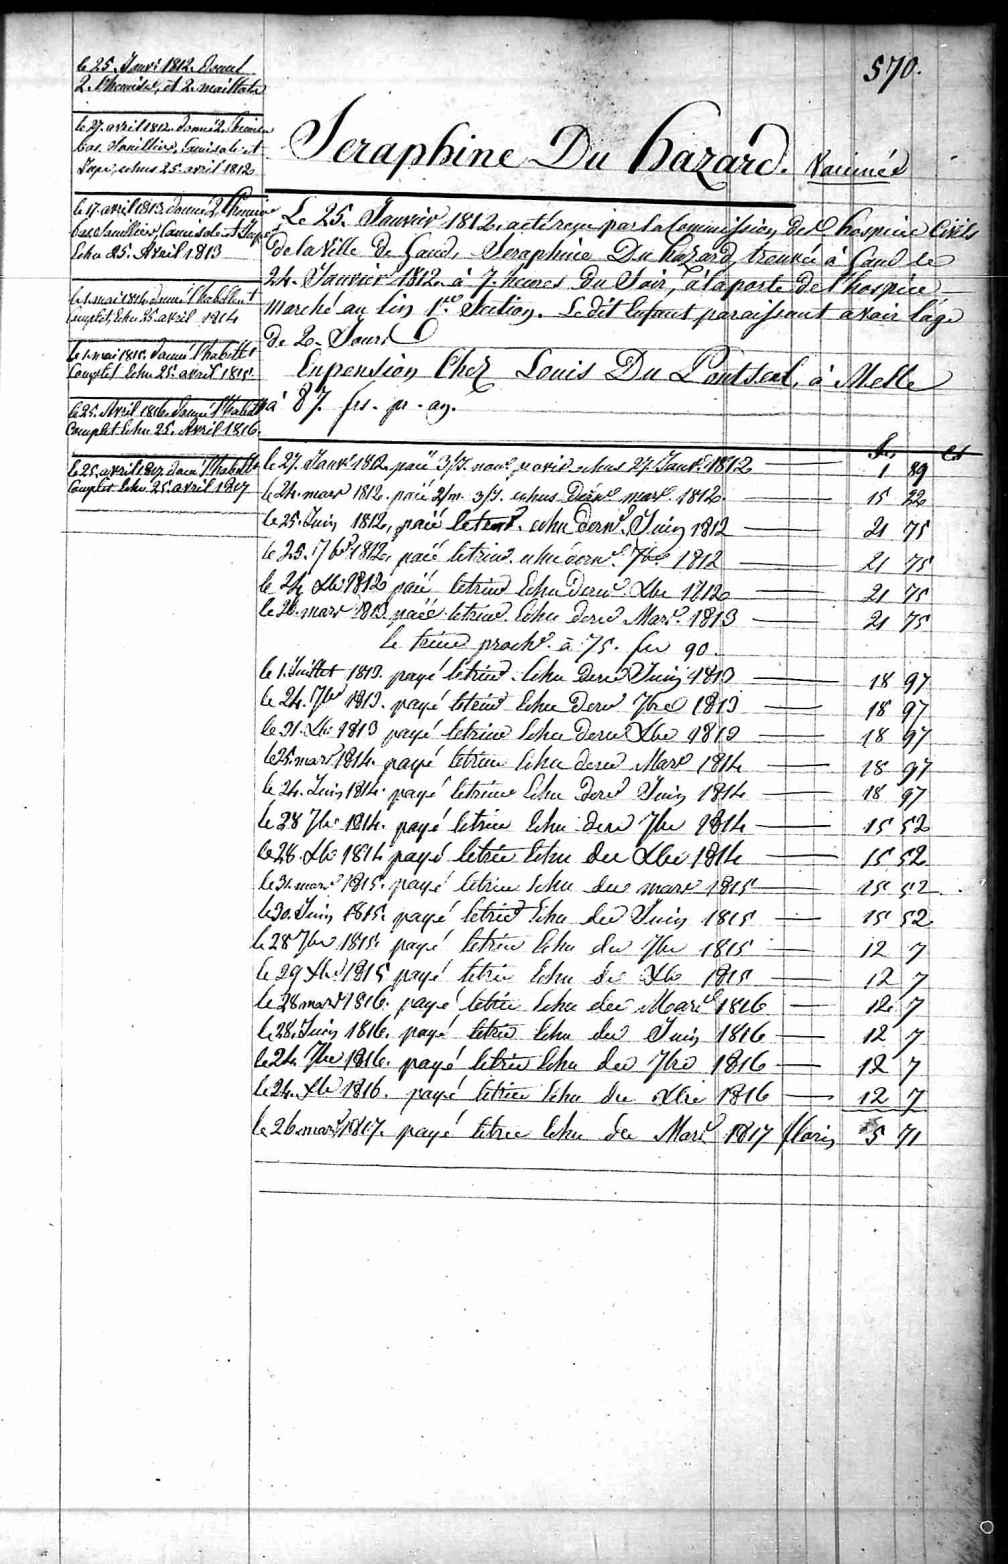 570.
Seraphine Du hazard. Vaccinée
le 25. Janvr 1812. Donné
2. Chemises, et 2. maillots
le 27. avril 1812. donné 2. Chemises
bas. Souilliers, Camisole et
Jupe, echus 25 avril 1812
le 17. avril 1813. donné 2. Chemises
bas Souilliers, Camisole et Jupe
Echu 25. Avril 1813
le 1. mai 1814. donné l'habillemt
Complet, Echu 25 avril 1814
le 1. mai 1815. donné l'habillt
Complet Echu 25. avril 1815
le 25. Avril 1816. Donné l'habillt
Complet Echu 25. Avril 1816
le 25. avril 1817. donné l'habillt
Complet Echu 25 avril 1817
Le 25. Janvier 1812. acté reçu par la Commission des hospice Civils
de la Ville de Gand, Seraphine Du hazard, trouvée à Gand le
24. Janvier 1812. à 7. heures du Soir, à la porte de l'hospice
Marché au lin 1re Section. Le dit Enfant paraissant avoir l'age
de 2. Jours
En pension Chez Louis Du à Melle
à 87. frs. pr. an.
frs cs
le 27. Janvr 1812. paié 3/J. echus 27 Janvr 1812 1 89
le 24. mars 1812. paié 2/m. 3/J. echus dernr mars. 1812. 15 22
le 25. Juin 1812, paié le trimr. echu dernr. Juin 1812 21 75
le 25. 7br 1812, paié le trimr. echu dernr. 7bre 1812 21 75
le 24 Xbr 1812 paié le trimr Echu Dernr. Xbre 1812 21 75
le 26. mars 1813. paié le trimr. Echu dernr Mars. 1813 21 75
le trimr prochn. à 75. frs 90.
le 1. Juillet 1813. payé le trimr. Echu Dernr Juin 1813 18 97
le 24. 7br 1813. payé le trimr Echu dernr 7bre 1813 18 97
le 31. Xbr 1813 payé le trimr Echu dernr Xbre 1813 18 97
le 25. mars 1814. payé le trimr Echu dernr Mars 1814 18 97
le 24. Juin 1814. payé le trimr Echu dernr Juin 1814 18 97
le 28 7br 1814. payé le trimr Echu dernr 7bre 1814 15 52
le 28. Xbr 1814 payé le trimr Echu der Xbre 1814 15 52
le 31. mars 1815. payé le trimr Echu der mars 1815 15 52
le 30. Juin 1815. payé le trimr Echu der Juin 1815 15 52
le 28 7br 1815. payé le trimr Echu der 7bre 1815 12 7
le 29 Xbr 1815 payé le trimr Echu der Xbre 1815 12 7
le 28 mars 1816. payé le trimr Echu der Mars 1816 12 7
le 28. Juin 1816. payé le trimr Echu der Juin 1816 12 7
le 24. 7br 1816. payé le trimr Echu der 7bre 1816 12 7
le 24. Xbr 1816. payé le trimr Echu der Xbre 1816 12 7
le 26. mars 1817. payé le trimr Echu der Mars 1817 florins 5 71